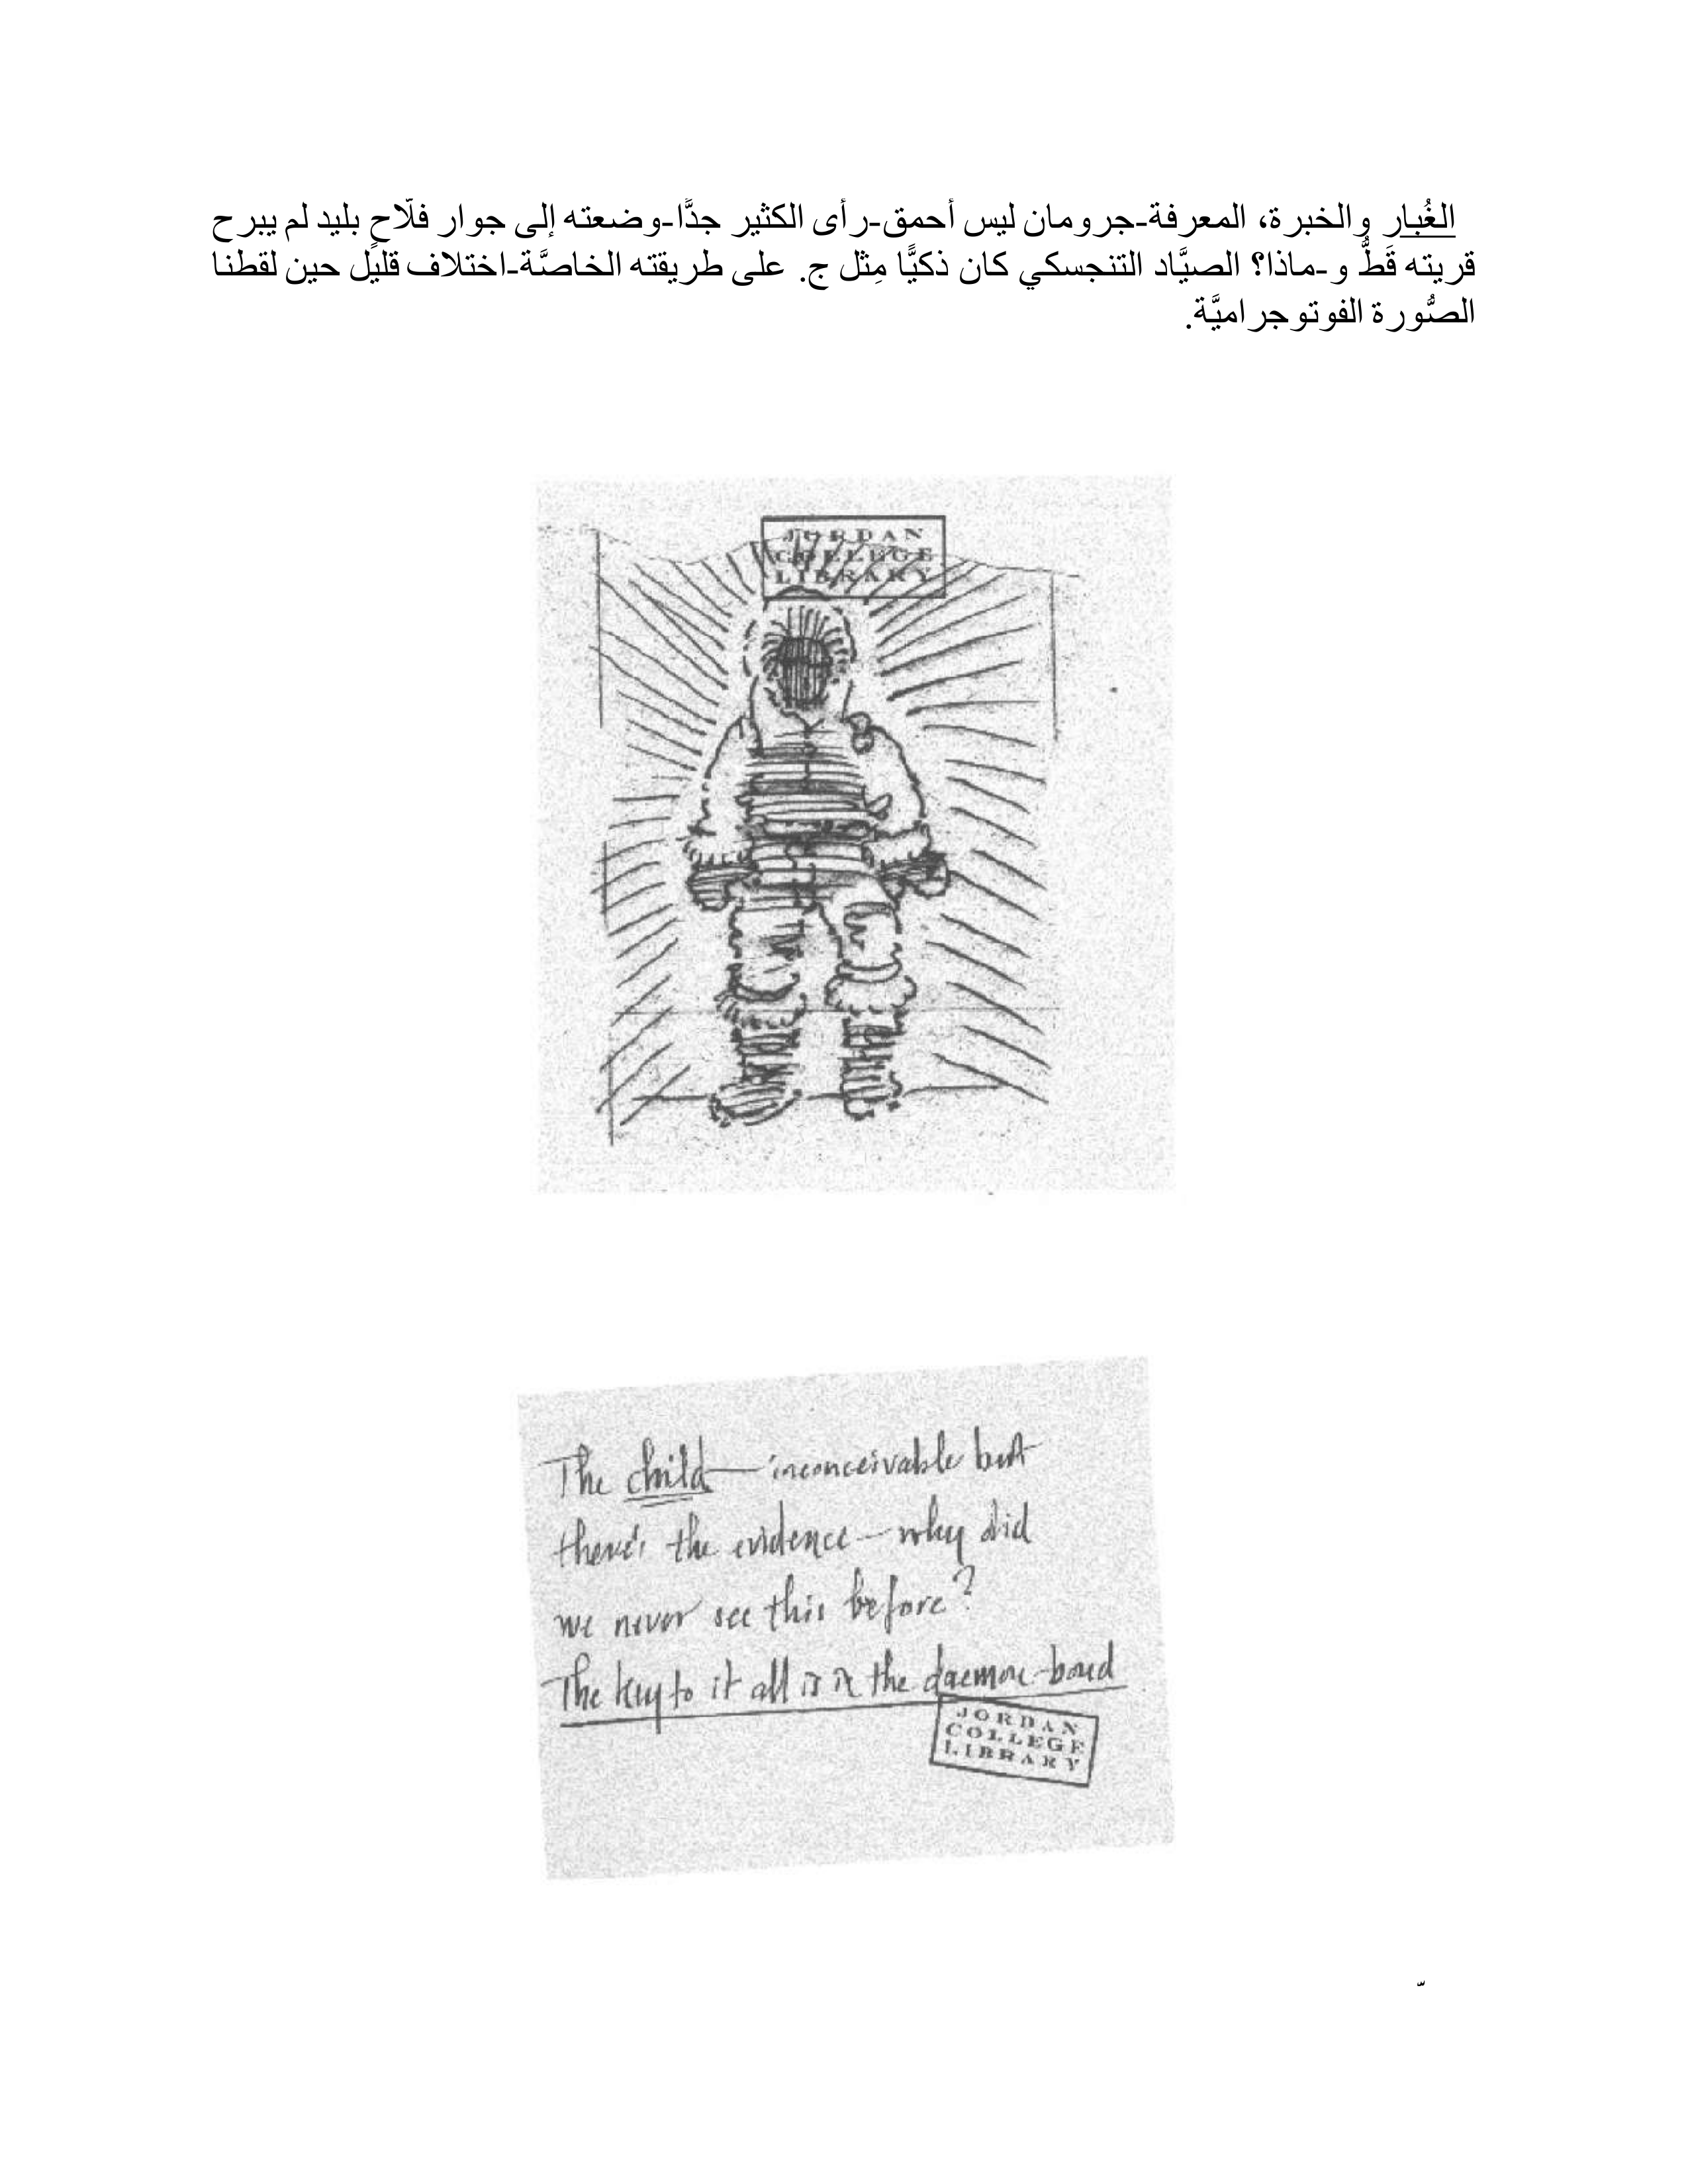 الغُبار والخبرة، المعرفة-جرومان ليس أحمق-رأى الكثير جدًّا-وضعته إلى جوار فلّاحٍ بليد لم يبرح
قريته قَطُّ و-ماذا؟ الصيَّاد التنجسكي كان ذكيًّا مِثل ج. على طريقته الخاصَّة-اختلاف قليل حين لقطنا
الصُّورة الفوتوجراميَّة.
JORDAN
COLLEGE
LIBRARY
The child—inconceivable but
there's the evidence—why did
we never see this before?
The key to it all is in the daemon-bond
JORDAN
COLLEGE
LIBRARY